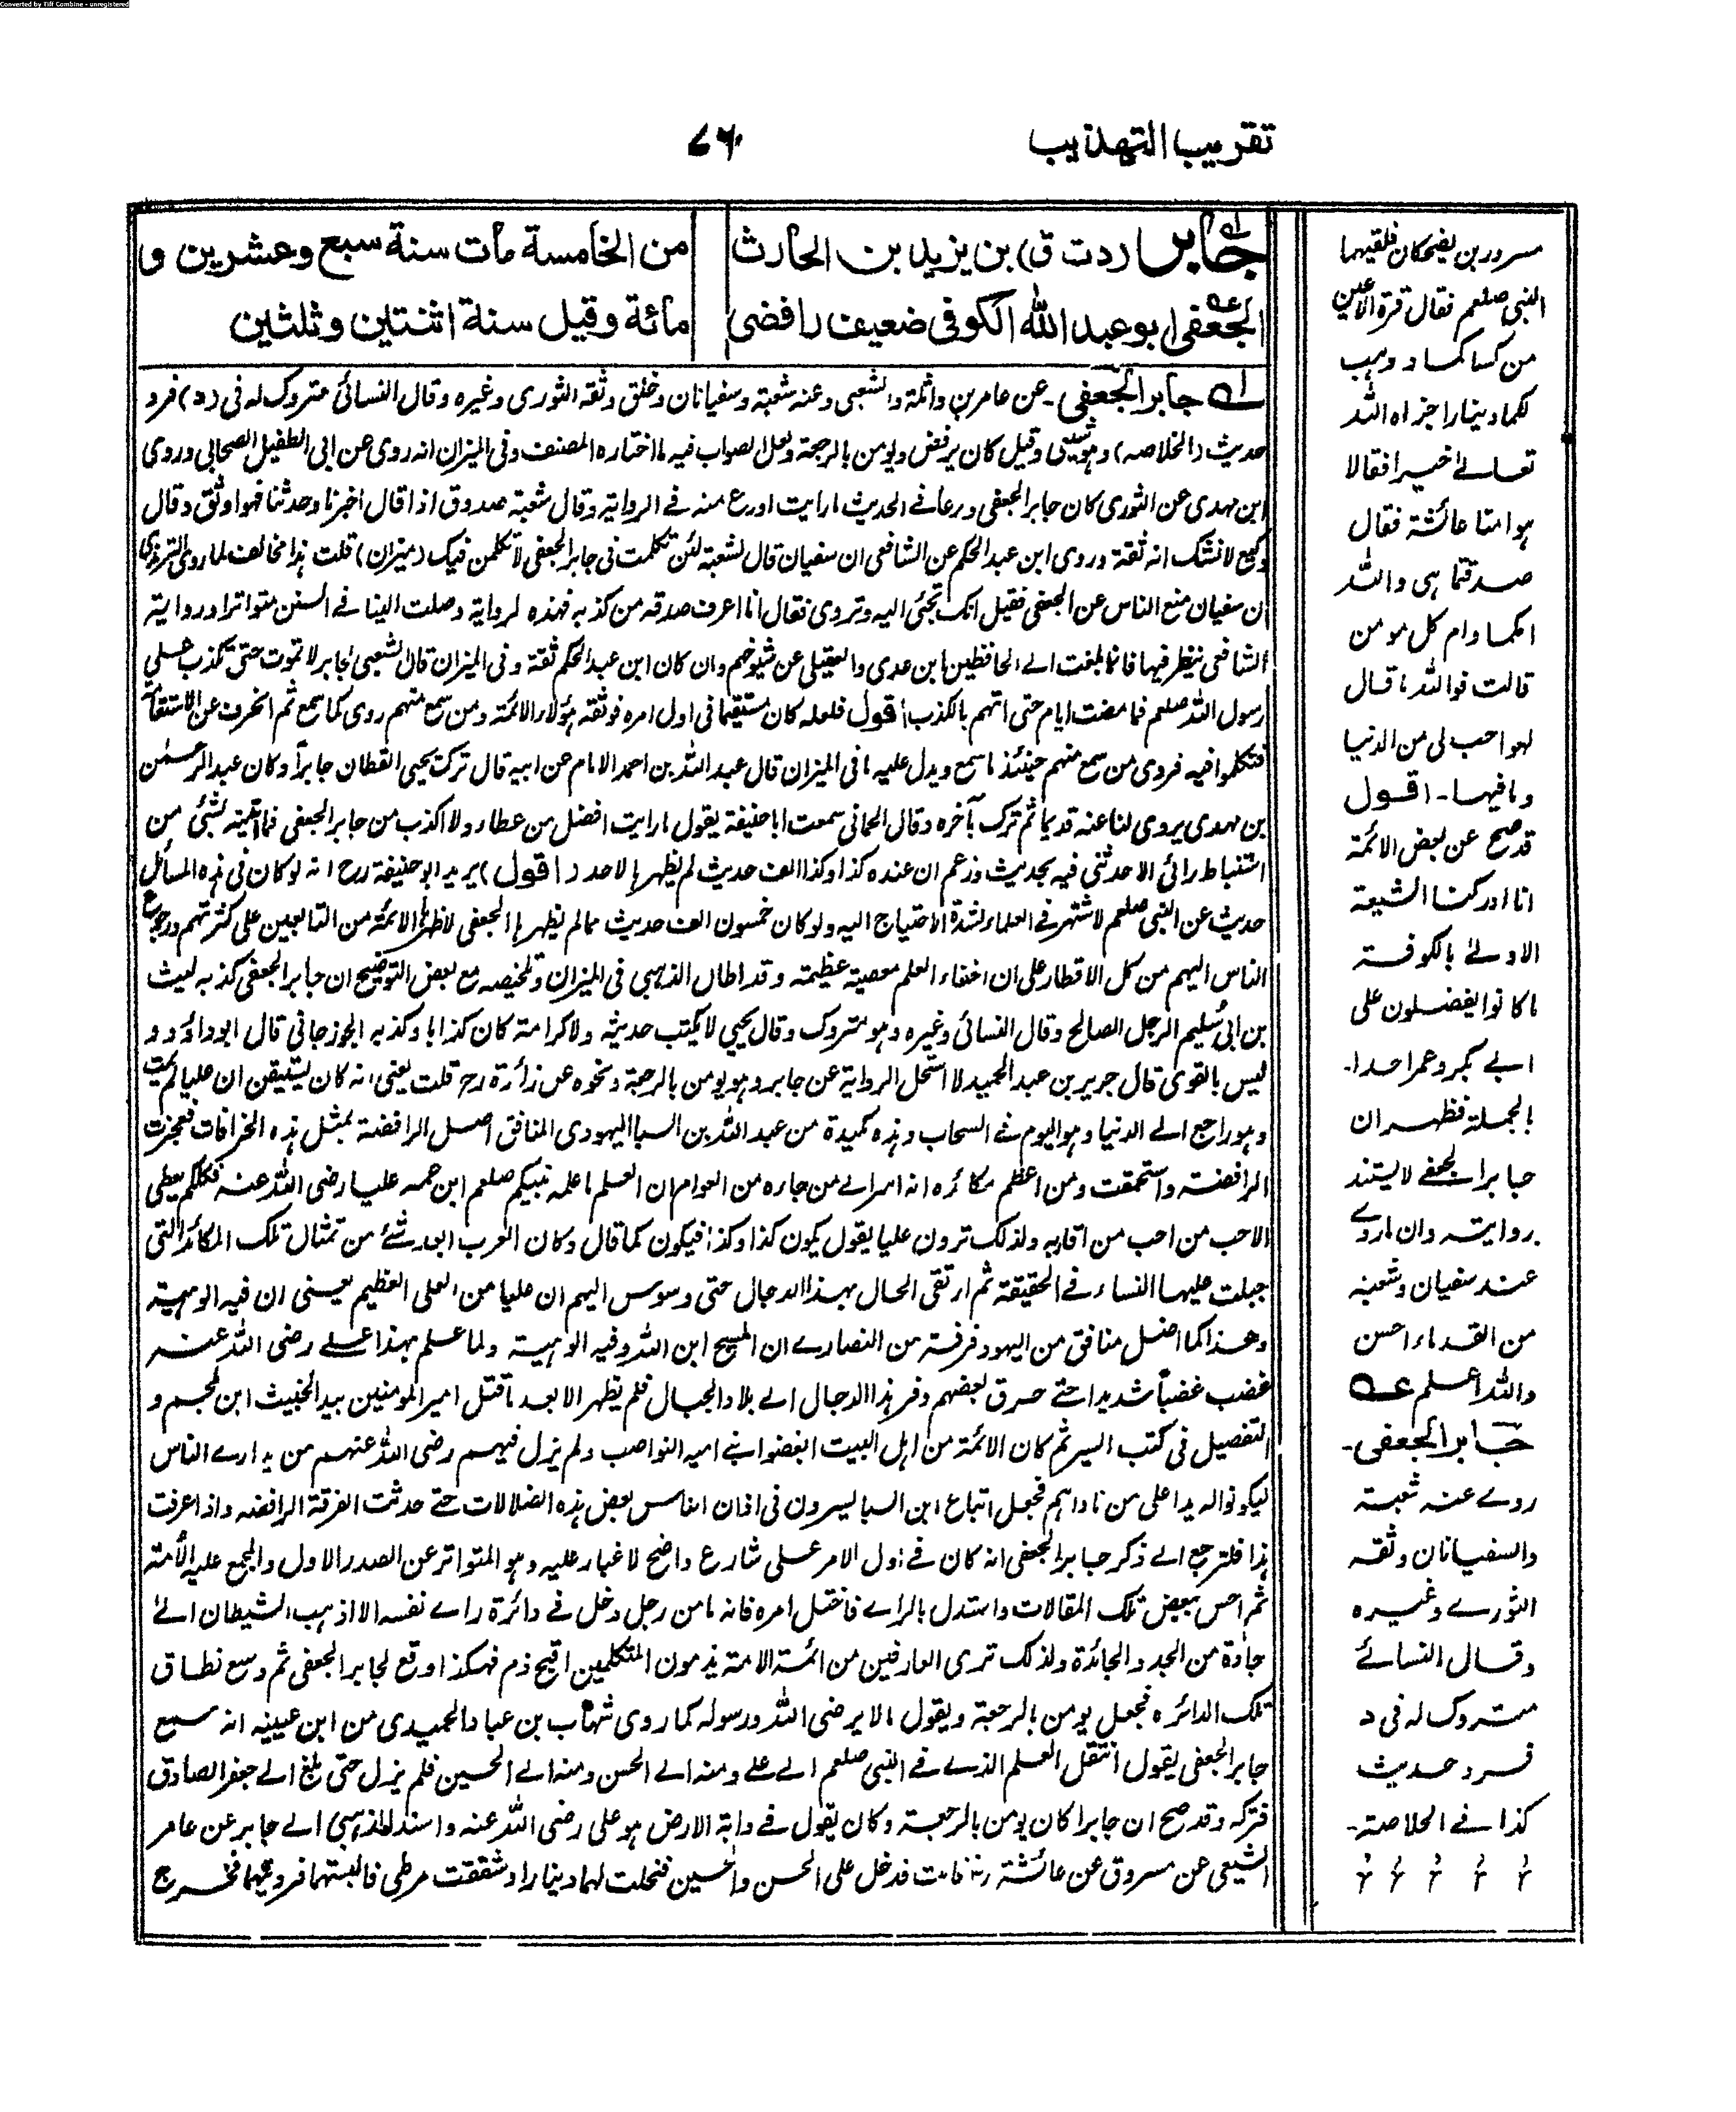 Converted by Tiff Combine - unregistered
تقریب التهذیب
۷۶
جابر (د ت ق) بن یزید بن الحارث
الجعفی ابو عبد الله الکوفی ضعیف رافضی
من الخامسة مات سنة سبع وعشرین و
مائة وقیل سنة اثنتین وثلثین
جابر الجعفی۔ عن عامر بن واثلة والشعبی وعنه شعبة وسفیانان وخلق وثقه الثوری وغیره وقال النسائی متروک له فی (د) فرد
حدیث (الخلاصه) وهو شیعی وقیل کان یرفض ویومن بالرجعة ولعل الصواب فیه ما اختاره المصنف وفی المیزان انه روی عن ابی الطفیل الصحابی وروی
ابن مهدی عن الثوری کان جابر الجعفی ورعا فی الحدیث ما رایت اورع منه فی الروایة وقال شعبة صدوق اذا قال اخبرنا وحدثنا فهو اوثق وقال
وکیع لا نشک انه ثقة وروی ابن عبد الحکم عن الشافعی ان سفیان قال لشعبة لئن تکلمت فی جابر الجعفی لا تکلمن فیک (میزان) قلت هذا مخالف لما روی الترمذی
ان سفیان منع الناس عن الجعفی فقیل انک تجئ الیه وتروی فقال انا اعرف صدقه من کذبه فهذه الروایة وصلت الینا فی السنن متواترا وروایة
الشافعی ینظر فیها فانما بلغت الی الحافظین ابن عدی والعقیلی عن شیوخهم وان کان ابن عبد الحکم ثقة وفی المیزان قال الشعبی لجابر لا تموت حتی تکذب علی
رسول الله صلعم فما مضت ایام حتی اتهم بالکذب اقول فلعله کان مستقیما فی اول امره فوثقه هؤلاء الائمة ومن سمع منهم روی کما سمع ثم انحرف عن الاستقامة
فتکلموا فیه فروی من سمع منهم حینئذ ما سمع ویدل علیه ما فی المیزان قال عبد الله بن احمد الامام عن ابیه قال ترک یحیی القطان جابراً وکان عبد الرحمٰن
بن مهدی یروی لنا عنه قدیما ثم ترک بآخره وقال الحمانی سمعت ابا حنیفة یقول ما رایت افضل من عطاء ولا اکذب من جابر الجعفی فما اتیته بشئ من
استنباط رائی الا حدثنی فیه بحدیث وزعم ان عنده کذا وکذا الف حدیث لم یظهرها لاحد (اقول) یرید ابو حنیفة رح انه لو کان فی هذه المسائل
حدیث عن النبی صلعم لاشتهر فی العلماء لشدة الاحتیاج الیه ولو کان خمسون الف حدیث مما لم یظهرها الجعفی لاظهرها الائمة من التابعین علی کثرتهم ورجوع
الناس الیهم من کل الاقطار علی ان اخفاء العلم معصیة عظیمة وقد اطال الذهبی فی المیزان وتلخیصه مع بعض التوضیح ان جابر الجعفی کذبه لیث
بن ابی سُلیم الرجل الصالح وقال النسائی وغیره وهو متروک وقال یحیی لا یکتب حدیثه ولا کرامة کان کذابا وکذبه الجوزجانی قال ابو داؤد و
لیس بالقوی قال جریر بن عبد الحمید لا استحل الروایة عن جابر وهو یومن بالرجعة ونحوه عن زائدة رح قلت یعنی انه کان یستیقن ان علیا لم یمت
وهو راجع الی الدنیا وهو الیوم فی السحاب وهذه مکیدة من عبد الله بن السبا الیهودی المنافق اضل الرافضة بمثل هذه الخرافات فعجزت
الرافضة واستحمقت ومن اعظم مکائده انه اسر الی من جاءه من العوام ان العلم ما علمه نبیکم صلعم ابن عمه علیا رضی الله عنه فکلکم یعطی
الاحب من احب من اقاربه ولذلک ترون علیا یقول یکون کذا وکذا فیکون کما قال وکان العرب ابعد شئ من تمثال تلک المکائد التی
جبلت علیها النساء فی الحقیقة ثم ارتقی الحال بهذا الدجال حتی وسوس الیهم ان علیا من العلی العظیم یعنی ان فیه الوهیة
وهذا کما اضل منافق من الیهود فرقة من النصاری ان المسیح ابن الله وفیه الوهیة ولما علم بهذا علی رضی الله عنه
غضب غضباً شدیدا حتی حرق بعضهم وفر هذا الدجال الی بلاد الجبال فلم یظهر الا بعد ما قتل امیر المومنین بید الخبیث ابن ملجم و
التفصیل فی کتب السیر ثم کان الائمة من اهل البیت ابغضوا بنی امیه النواصب ولم یزل فیهم رضی الله عنهم من یداری الناس
لیکونوا له یدا علی من ناداهم فجعل اتباع ابن السبا یسرون فی اذان الناس بعض هذه الضلالات حتی حدثت الفرقة الرافضه واذا عرفت
هذا فلترجع الی ذکر جابر الجعفی انه کان فی اول الامر علی شارع واضح لا غبار علیه وهو المتواتر عن الصدر الاول والمجمع علیه الأمة
ثم احس ببعض تلک المقالات واستدل بالرای فاختل امره فانه ما من رجل دخل فی دائرة رای نفسه الا اذهب الشیطان الی
جادة من الجد والجائدة ولذلک تری العارفین من ائمة الامة یذمون المتکلمین اقبح ذم فهکذا وقع لجابر الجعفی ثم وسع نطاق
تلک الدائره فجعل یومن بالرجعة ویقول ما لا یرضی الله ورسوله کما روی شهاب بن عباد الحمیدی من ابن عیینه انه سمع
جابر الجعفی یقول انتقل العلم الذی فی النبی صلعم الی علی ومنه الی الحسن ومنه الی الحسین فلم یزل حتی بلغ الی جعفر الصادق
فترکه وقد صح ان جابرا کان یومن بالرجعة وکان یقول فی دابة الارض هو علی رضی الله عنه واسند الذهبی الی جابر عن عامر
الشیعی عن مسروق عن عائشة رض قالت فدخل علی الحسن والحسین فنحلت لهما دینارا وشققت مرطی فالبستهما فرویتهما فخرج
مسرور بن یضحکان فلقیهما
النبی صلعم فقال قرة الاعین
من کساکما ووهب
لکما دینارا جزاه الله
تعالی خیرا فقالا
هو امنا عائشة فقال
صدقتما هی والله
امکما وام کل مومن
قالت فوالله ما قال
لهو احب لی من الدنیا
وما فیها۔ اقول
قد صح عن بعض الائمة
انا ادرکنا الشیعة
الاولیٰ بالکوفة
ما کانوا یفضلون علی
ابی بکر وعمر احدا۔
بالجملة فظهر ان
جابر الجعفی لا یستند
بروایته وان ما روی
عند سفیان وشعبه
من القدماء احسن
والله اعلم عه
جابر الجعفی۔
روی عنه شعبة
والسفیانان وثقه
الثوری وغیره
وقال النسائی
متروک له فی د
فرد حدیث
کذا فی الخلاصة۔